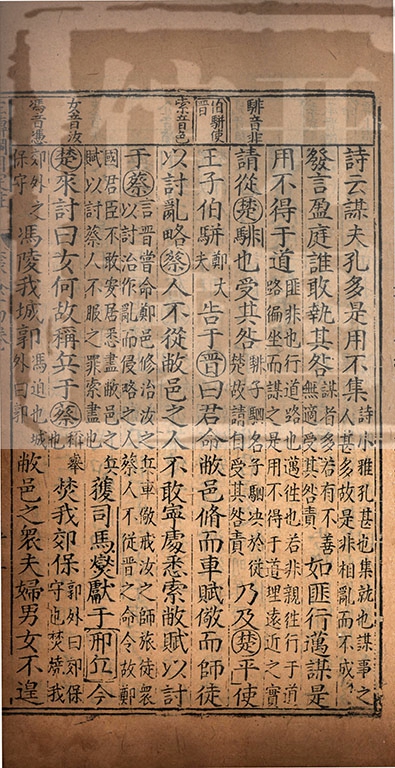 騑音非
伯駢使
晉
索音色
女音汝
馮音憑
詩云謀夫孔多是用不集詩小雅孔甚也集就也謀事之人甚多故是非相亂而不成
發言盈庭誰敢執其咎謀者多若有不善無適受其咎責如匪行邁謀是
用不得于道匪非也行道路也邁徃也若非親徃行于道路偏坐而謀之是用不得于道理遠近之實
請從楚騑也受其咎騑子駟名子駟央於從楚故請有受其咎責乃及楚平使
王子伯駢鄭大夫告于晉曰君命敝邑脩而車賦儆而師徒
以討亂略蔡人不從敝邑之人不敢寧處悉索敝賦以討
于蔡言晉嘗命鄭邑修治汝之兵車儆戒汝之師旅徒衆以討治作亂而侵略之人蔡人不從晉之命令故鄭
國君臣不敢安居悉盡敝邑之兵賦以討蔡人不服之罪索盡也獲司馬燮獻于邢丘今
楚來討曰女何故稱兵于蔡稱舉也焚我郊保郭外曰郊保守也焚燒我
郊外之保守馮陵我城郭馮迫也城外曰郭敝邑之衆夫婦男女不遑